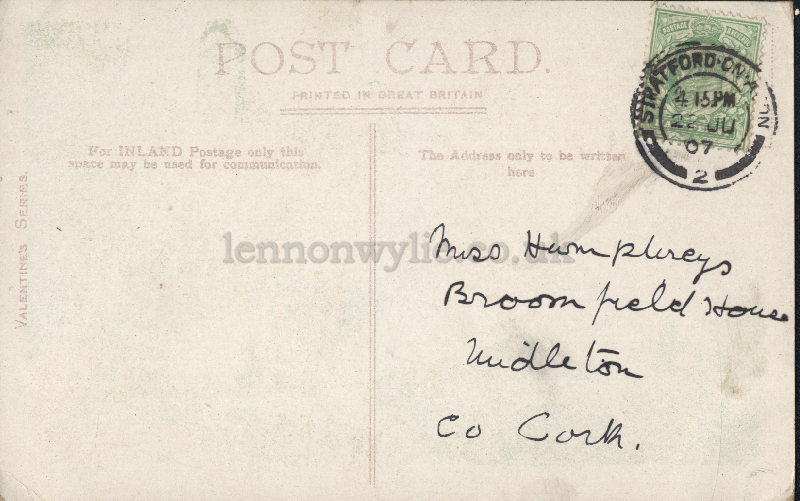 POST CARD.
PRINTED IN GREAT BRITAIN
For INLAND Postage only this
space may be used for communication.
The Address only to be written
here
VALENTINE'S SERIES.
POSTAGE
STRATFORD-ON-A
4 15 PM
22 JU
07
2
lennonwylie.co.uk
Miss Humphreys
Broomfield House
Midleton
Co Cork.